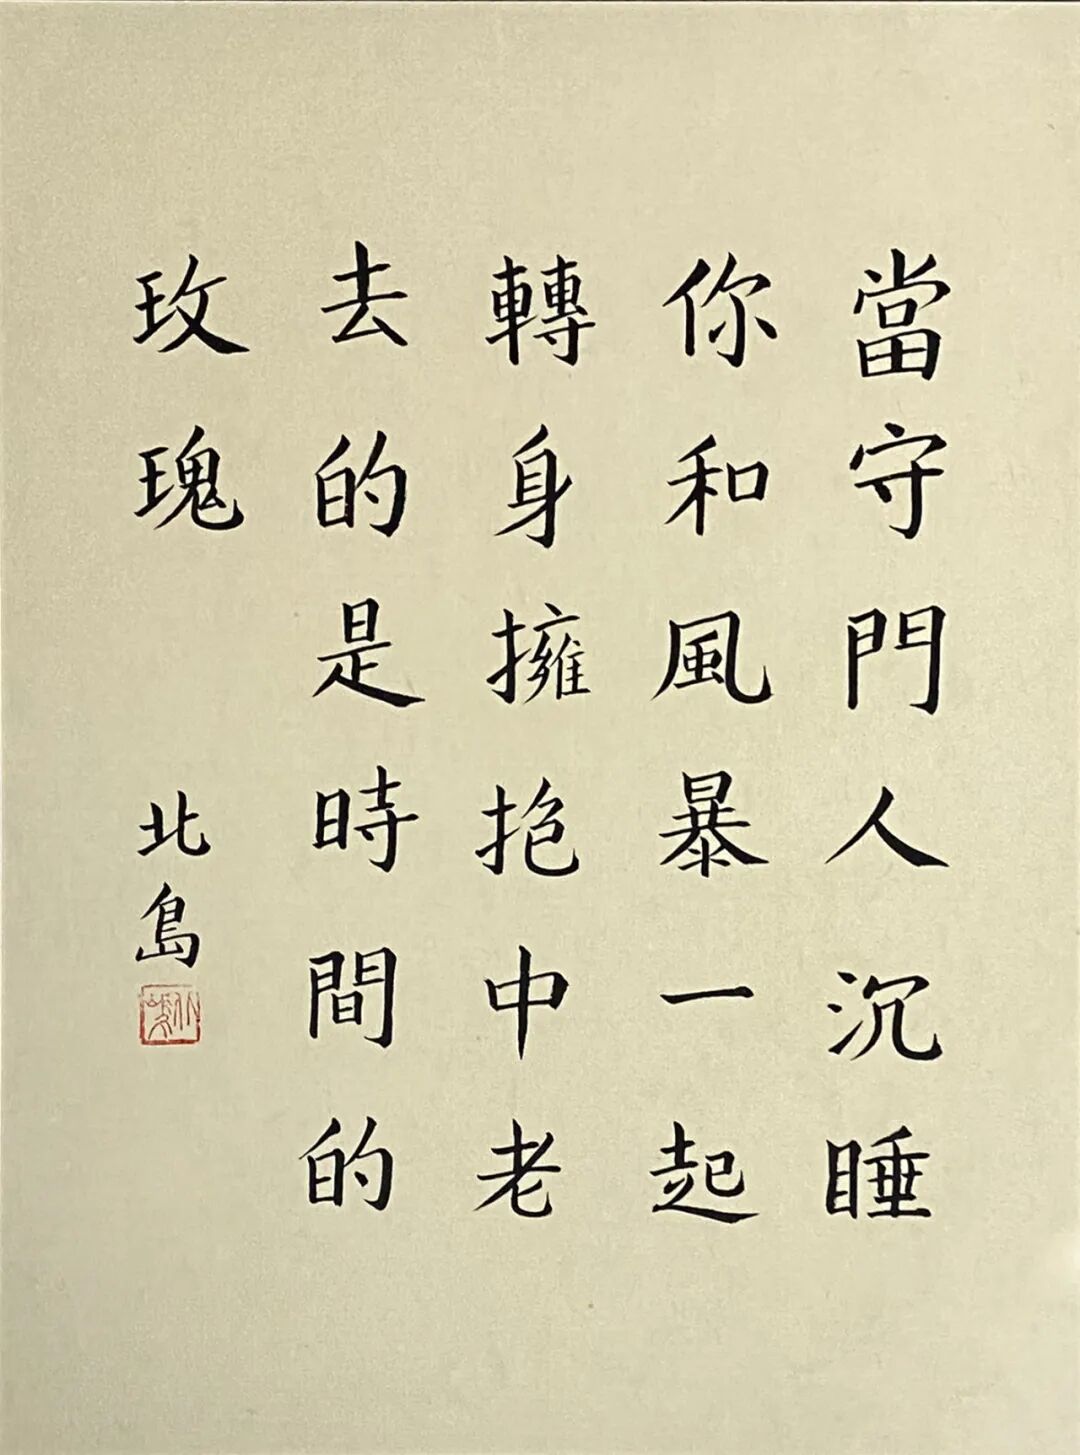 當守門人沉睡
你和風暴一起
轉身擁抱中老
去的是時間的
玫瑰
北島